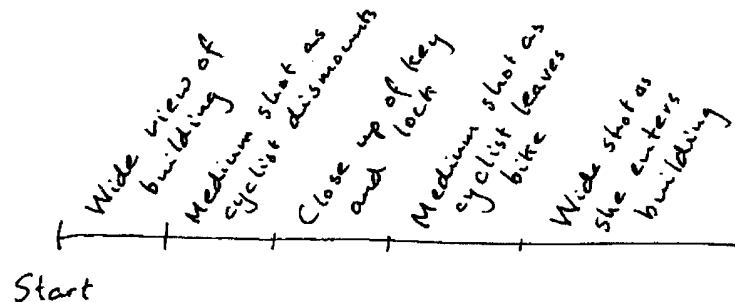 Wide view of
building
Medium shot as
cyclist dismounts
Close up of key
and lock
Medium shot as
cyclist leaves
bike
Wide shot as
she enters
building
Start